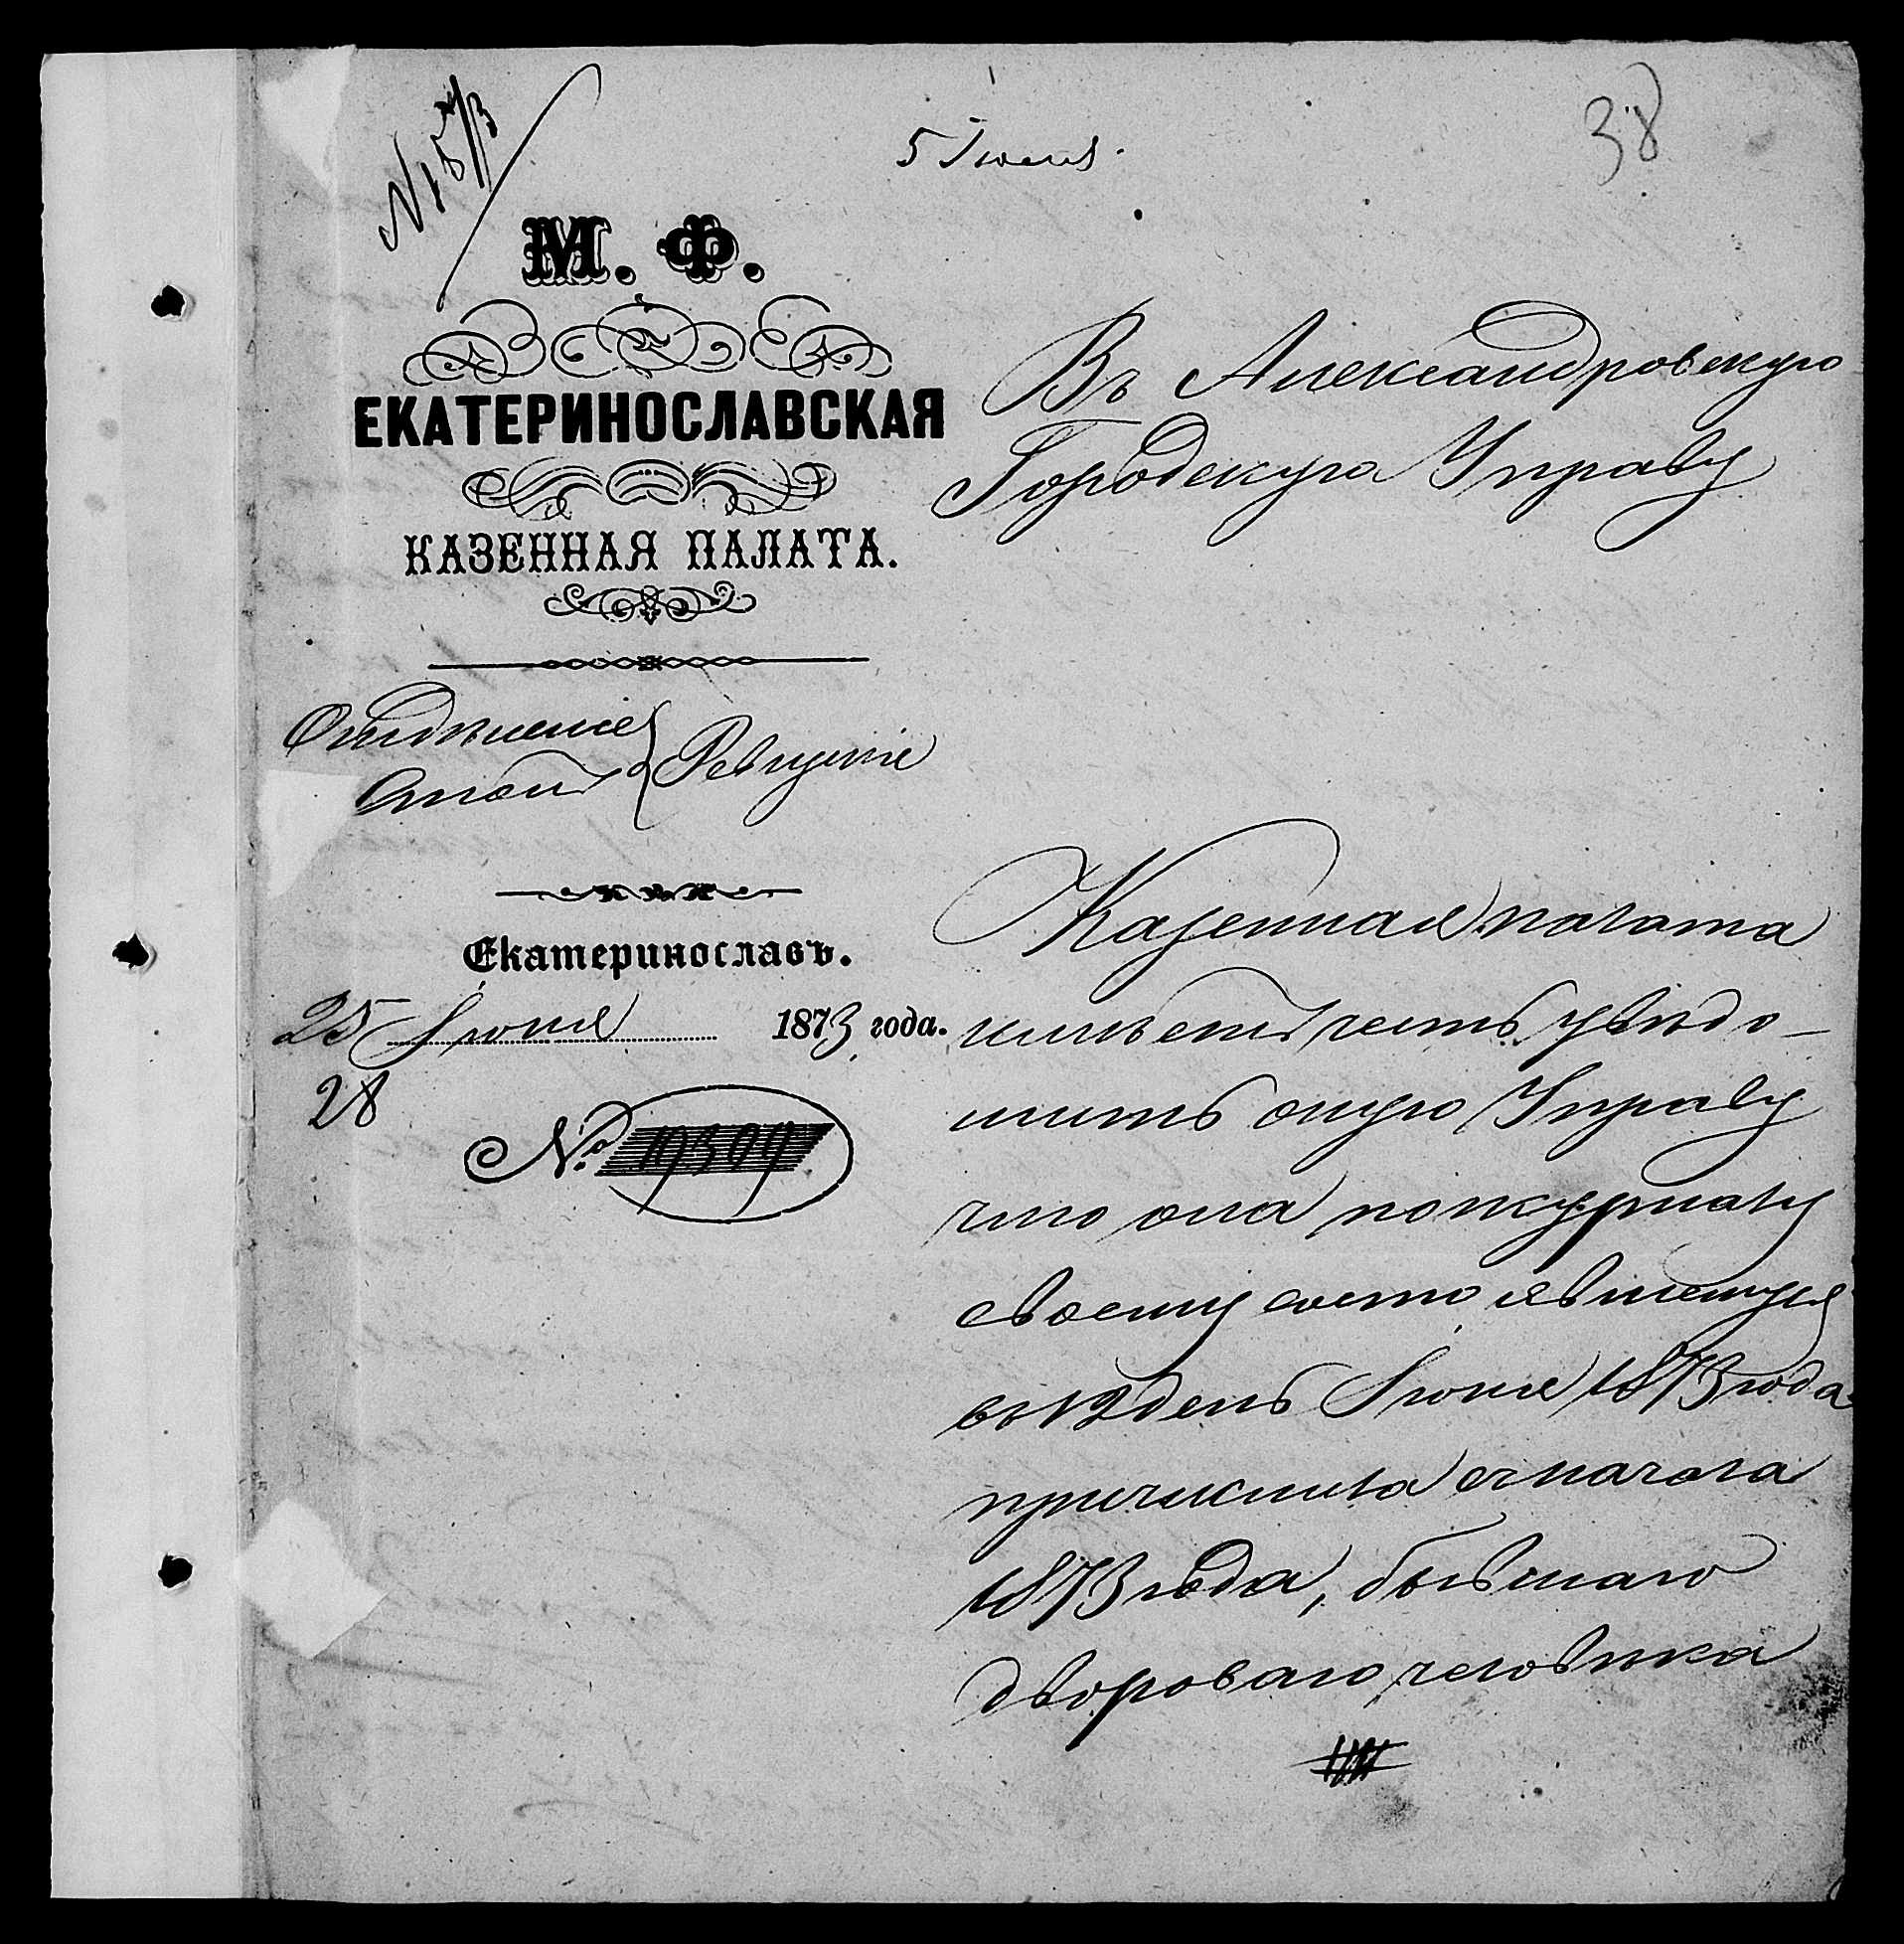 38
5 Іюля.
М. Ф.
ЕКАТЕРИНОСЛАВСКАЯ
КАЗЕННАЯ ПАЛАТА.
Отдѣленіе
Столъ
Ревизскіе
Екатеринославъ.
25 Іюня 1873 года.
28
№ 19309
Въ Александровскую
Городскую Управу
Казенная палата
имѣетъ честь увѣдо-
мить оную Управу
что она по журналу
своему состоявшемуся
въ 12 день Іюня 1873 года
причислила съ начала
1873 года, бывшаго
двороваго человѣка